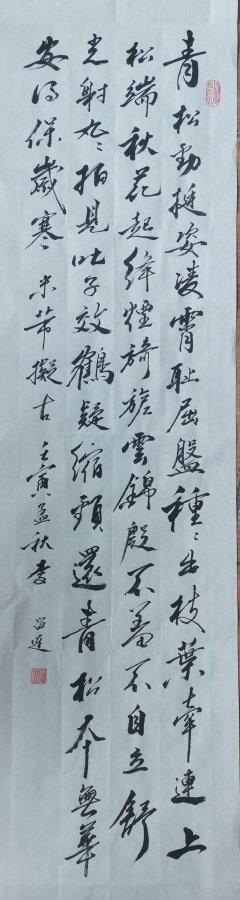 青松勁挺姿凌霄耻屈盤種〻出枝葉牽連上
松端秋花起絳煙旖旎雲錦殷不羞不自立舒
光射丸〻柏見吐子效鶴疑縮頸還青松本無華
安得保歲寒 米芾擬古 壬寅孟秋